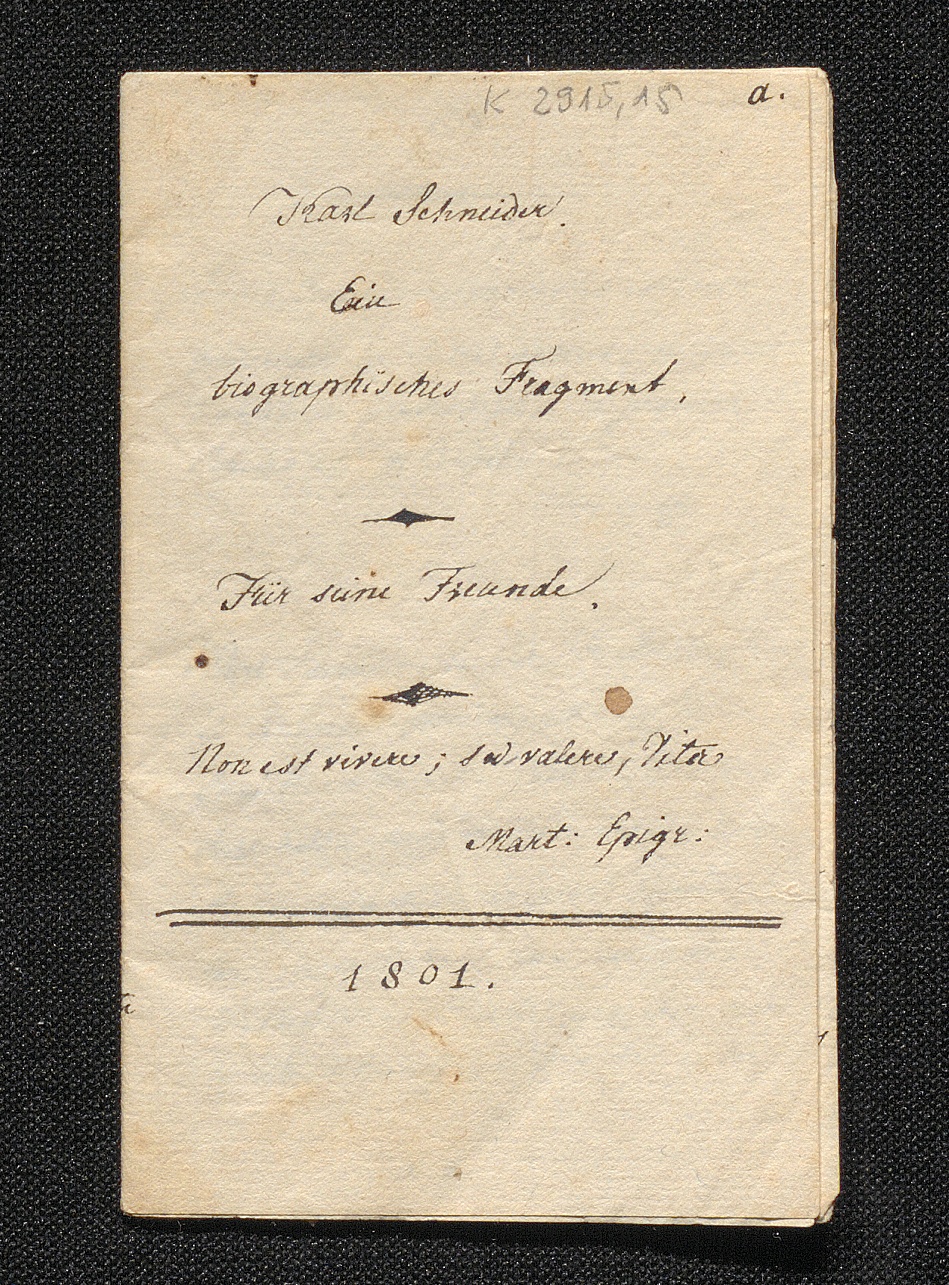 K 2915,15 a.
Karl Schneider.
Ein
biographisches Fragment.
Für seine Freunde.
Non est vivere; sed valere, Vita
Mart: Epigr:
1801.